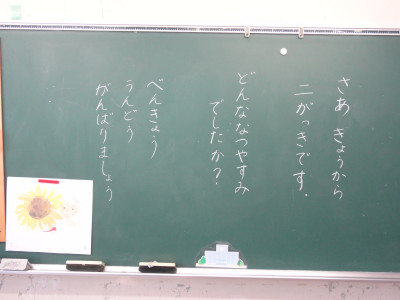 さあ きょうから
二がっきです。
どんななつやすみ
でしたか？
べんきょう
うんどう
がんばりましょう